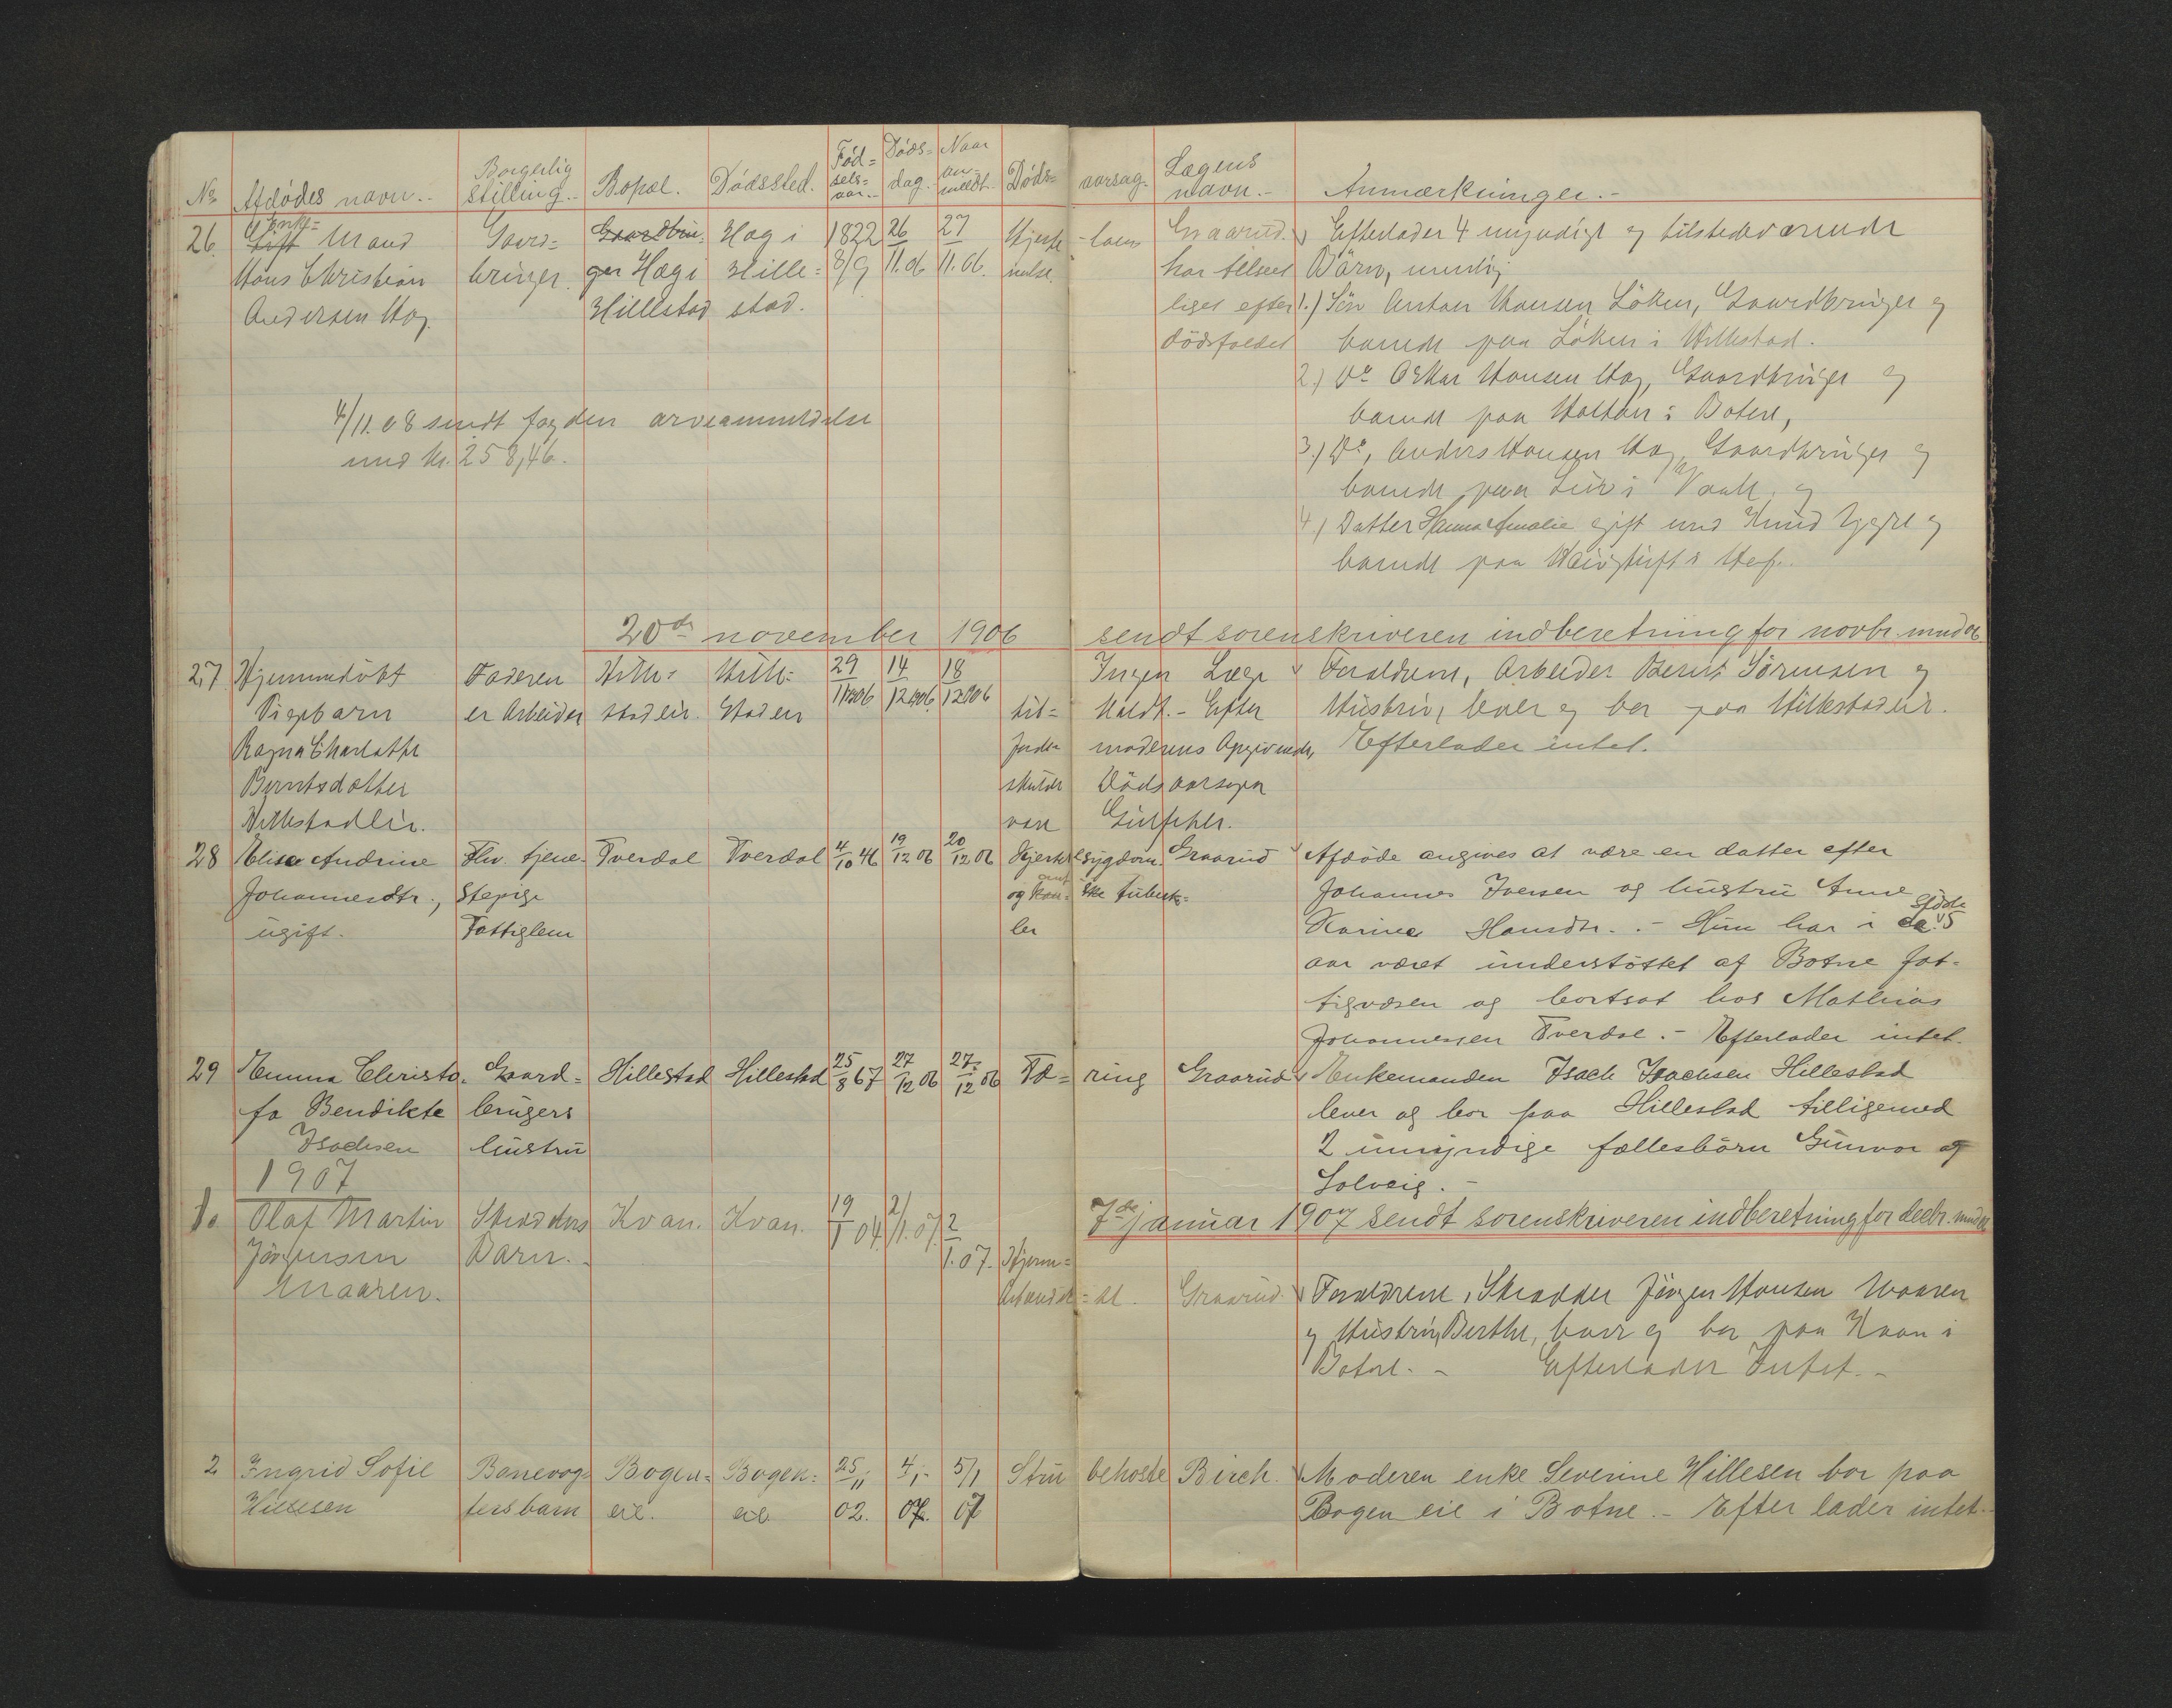 No Afdödes navn.. Borgerlig stilling.. Bopæl. Dödssted. Föd=sels=aar.. Döds=dag. Naar an=meldt. Döds=aarsag. Lægens navn.- Anmærkninger.-
26. Enke= Gift Mand
Hans Christian
Andersen Hag.
Gaard=
bruger.
Gaardbru=
ger Hag i
Hillestad
Hag i
Hille=
stad.
1822
8/9
26
11.06
27
11.06.
Hjerte-lam
melse.
Graarud.
har tilseet
liget efter
dödsfaldet
Efterlader 4 myndige og tilstedeværende
Börn, nemlig
1.) Sön Anton Hansen Löken, Gaardbruger og
boende paa Löken i Hillestad.
2.) Do Oskar Hansen Hag, Gaardbruger og
boende paa Holtan i Botne,
3.) Do, Anders Hansen Hag, Gaardbruger og
boende paa i Vaale, og
4.) Datter Hanna Amalie gift med Knud og
boende paa i Hof..
4/11.08 sendt fogden arveanmeldelse
med kr. 258,46.
20de november 1906 sendt sorenskriveren indberetning for novbr. mnd 06
27 Hjemmedöbt
Pigebarn
Ragna Charlothe
Berntsdatter
Hillestadlie.
Faderen
er Arbeider
Hille=
stadlie.
Hille=
staden
29
11 1906
14
12 1906.
18
12 1906
Ingen Læge
til= kaldt.- Efter
Jorde= moderens Opgivende,
skulde Dödsaarsagen
være Gulfeber.
Forældrene, Arbeider Bernt Sörensen og
Hustru, lever og bor paa Hillestadlie.
Efterlader intet.
28 Elise Andrine
Johannesdtr.,
ugift.
Fhv. tjene-
stepige
Fattiglem
Tverdal
Tverdal
4
10 46
19
12 06
20
12 06
Hjertesygdom
og kan= ske tuberk=
ler
Graarud
Afdöde angives at være en datter efter
Johannes Iversen og hustru Anne
Karine Hansdtr. .- Hun har i de sidste 5
aar været understöttet af Botne fat=
tigvæsen og bortsat hos Mathias
Johannessen Tverdal.- Efterlader intet.
29 Emma Christo=
fa Bendikte
Isachsen
Gaard=
brugers
hustru
Hillestad
Hillestad
25
8 67
27
12 06
27
12 06
Tæ=ring
Graarud
Enkemanden Isach Isachsen Hillestad
lever og bor paa Hillestad tilligemed
2 umyndige fællesbörn Gunvor og
Solveig.-
1907
7de januar 1907 sendt sorenskriveren indberetning for decbr. mnd 06
1. Olaf Martin
Jörgensen
Maaren.
Skrædders
Barn..
Kvan.
Kvan.
19
1 04.
2/1.07.
2
1.07.
Hjerne=
betændel=se.
Graarud.
Forældrene, Skrædder Jörgen Hansen Maaren
og Hustru, Berthe, lever og bor paa Kvan i
Botne.- Efterlader Intet.-
2 Ingrid Sofie
Hillesen
Banevog=
ters barn
Bogen=
eie.
Bogen=
eie
25/11
02.
4/1
07.
5/1
07
Strubehoste
Birch.
Moderen enke Severine Hillesen bor paa
Bogen eie i Botne.- Efterlader intet.-